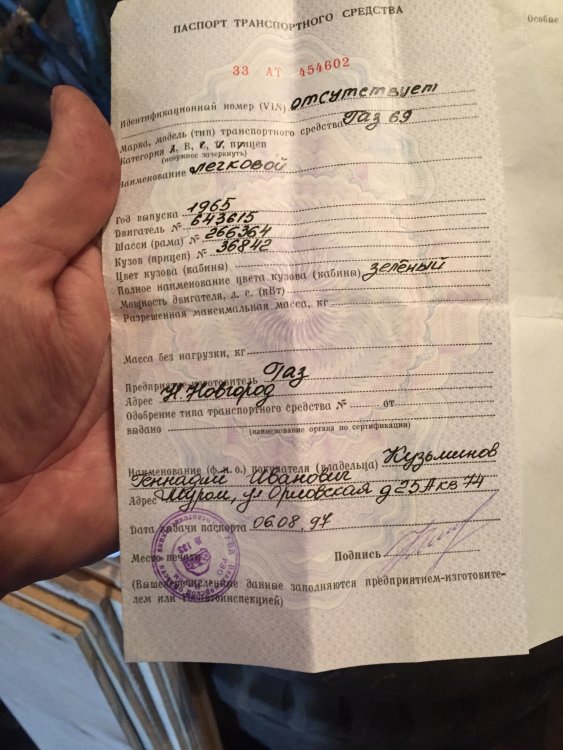 Особые
ПАСПОРТ ТРАНСПОРТНОГО СРЕДСТВА
33 АТ 454602
Идентификационный номер (VIN) отсутствует
Марка, модель (тип) транспортного средства Газ 69
Категория А, В, С, D, прицеп
(ненужное зачеркнуть)
Наименование легковой
Год выпуска 1965
Двигатель № 643615
Шасси (рама) № 266364
Кузов (прицеп) № 36842
Цвет кузова (кабины)
Полное наименование цвета кузова (кабины) зелёный
Мощность двигателя, л. с. (кВт)
Разрешенная максимальная масса, кг
Масса без нагрузки, кг
Предприятие-изготовитель Газ
Адрес Н.Новгород
Одобрение типа транспортного средства № от
выдано
(наименование органа по сертификации)
Наименование (ф. и. о.) покупателя (владельца) Кузьминов
Геннадий Иванович
Адрес г.Муром, ул Орловская д 25А кв 74
Дата выдачи паспорта 06.08.97
Место печати Подпись
(Вышеперечисленные данные заполняются предприятием-изготовите-
лем или Госавтоинспекцией)